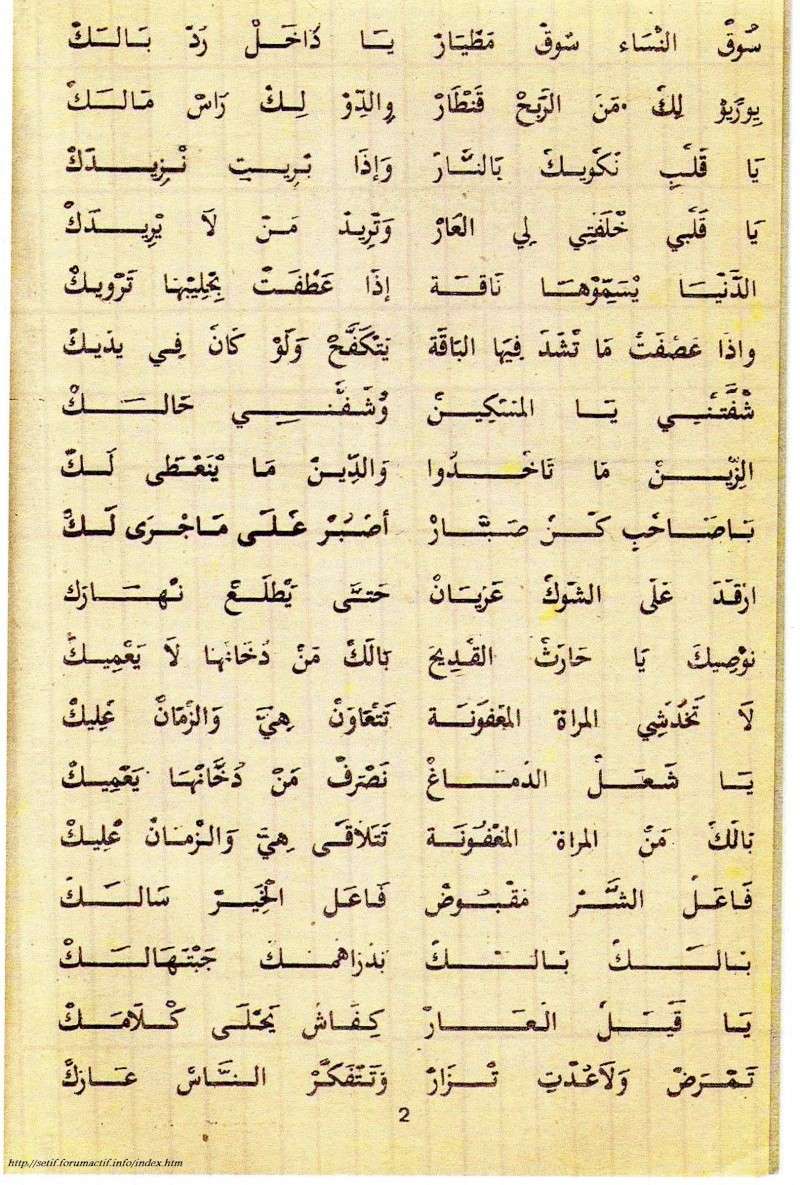 سُوقْ النّسَاء سُوقْ مَطْيَارْ يَا دَاخَلْ رُدّ بَالَكْ
يِورّيوْ لِكْ مَنَ الرَّبْحْ قَنْطَارْ وِالدِّوْ لِكْ رَاسْ مَالَكْ
يَا قَلْبِ نَكْوِيكْ بَالنَّارْ وَإذَا بْرِيتِ نْزِيدَكْ
يَا قَلْبِي خْلَفْتِي لِي العَارْ وَتْرِيدْ مَنْ لَا يْرِيدَكْ
الدَّنْيَا يْسَمِّوْهَا نَاقَة إذَا عَطْفَتْ بِحْلِيبْهَا تَرْوِيكْ
وَاذَا عَصْفَتْ مَا تْشَدَ فِيهَا البَاقَة يَتْكَفَّحْ وَلَوْ كَانْ فِي يدِيكْ
شْفْتَنِي يَا المَسْكِينْ وْشَفْنِي حَالَكْ
الزِّيْنْ مَا تَاخَدُوا وَالدِّينْ مَا يْنَعْطَى لَكْ
يَاصَاحْبِ كَنْ صَبَّارْ أصْبَرْ عْلَى مَاجْرَى لَكْ
ارْقَدَ عَلَى الشّوكْ عَرْيَانْ حَتَّى يَطْلَعْ نْهَارَك
نوْصِيكَ يَا حَارَثْ القْدِيحَ بَالَكْ مَنْ دُخَانْهَا لَا يَعْمِيكْ
لَا تَخْدْشِي المراة المَعْفونَة تَتْعَاوَنْ هِيَّ وَالزّمَانْ عْلِيكْ
يَا شَعَلْ الدْمَاغْ نَصْرَفْ مَنْ دُخَّانْهَا يَعْمِيكْ
بَالَكْ مَنْ المراة المَعْفُونَة تَتَلَاقَى هِيَّ وَالزّمَانْ عْلِيكْ
فَاعَلْ الشَّرْ مَقْبُوضْ فَاعَل الْخَيَرْ سَالَكْ
بَالَكْ بَالَكْ بَدْرَاهْمَكْ جَبْتَهَالَكْ
يَا قَيَلْ العَارْ كِفَاشْ يَحْلَى كْلَامَكْ
تَمْرَضْ وَلَاعُدْتِ تْزَارْ وَتَتْفَكَّرْ النَّاسْ عَارَكْ
2
http://setif.forumactif.info/index.htm